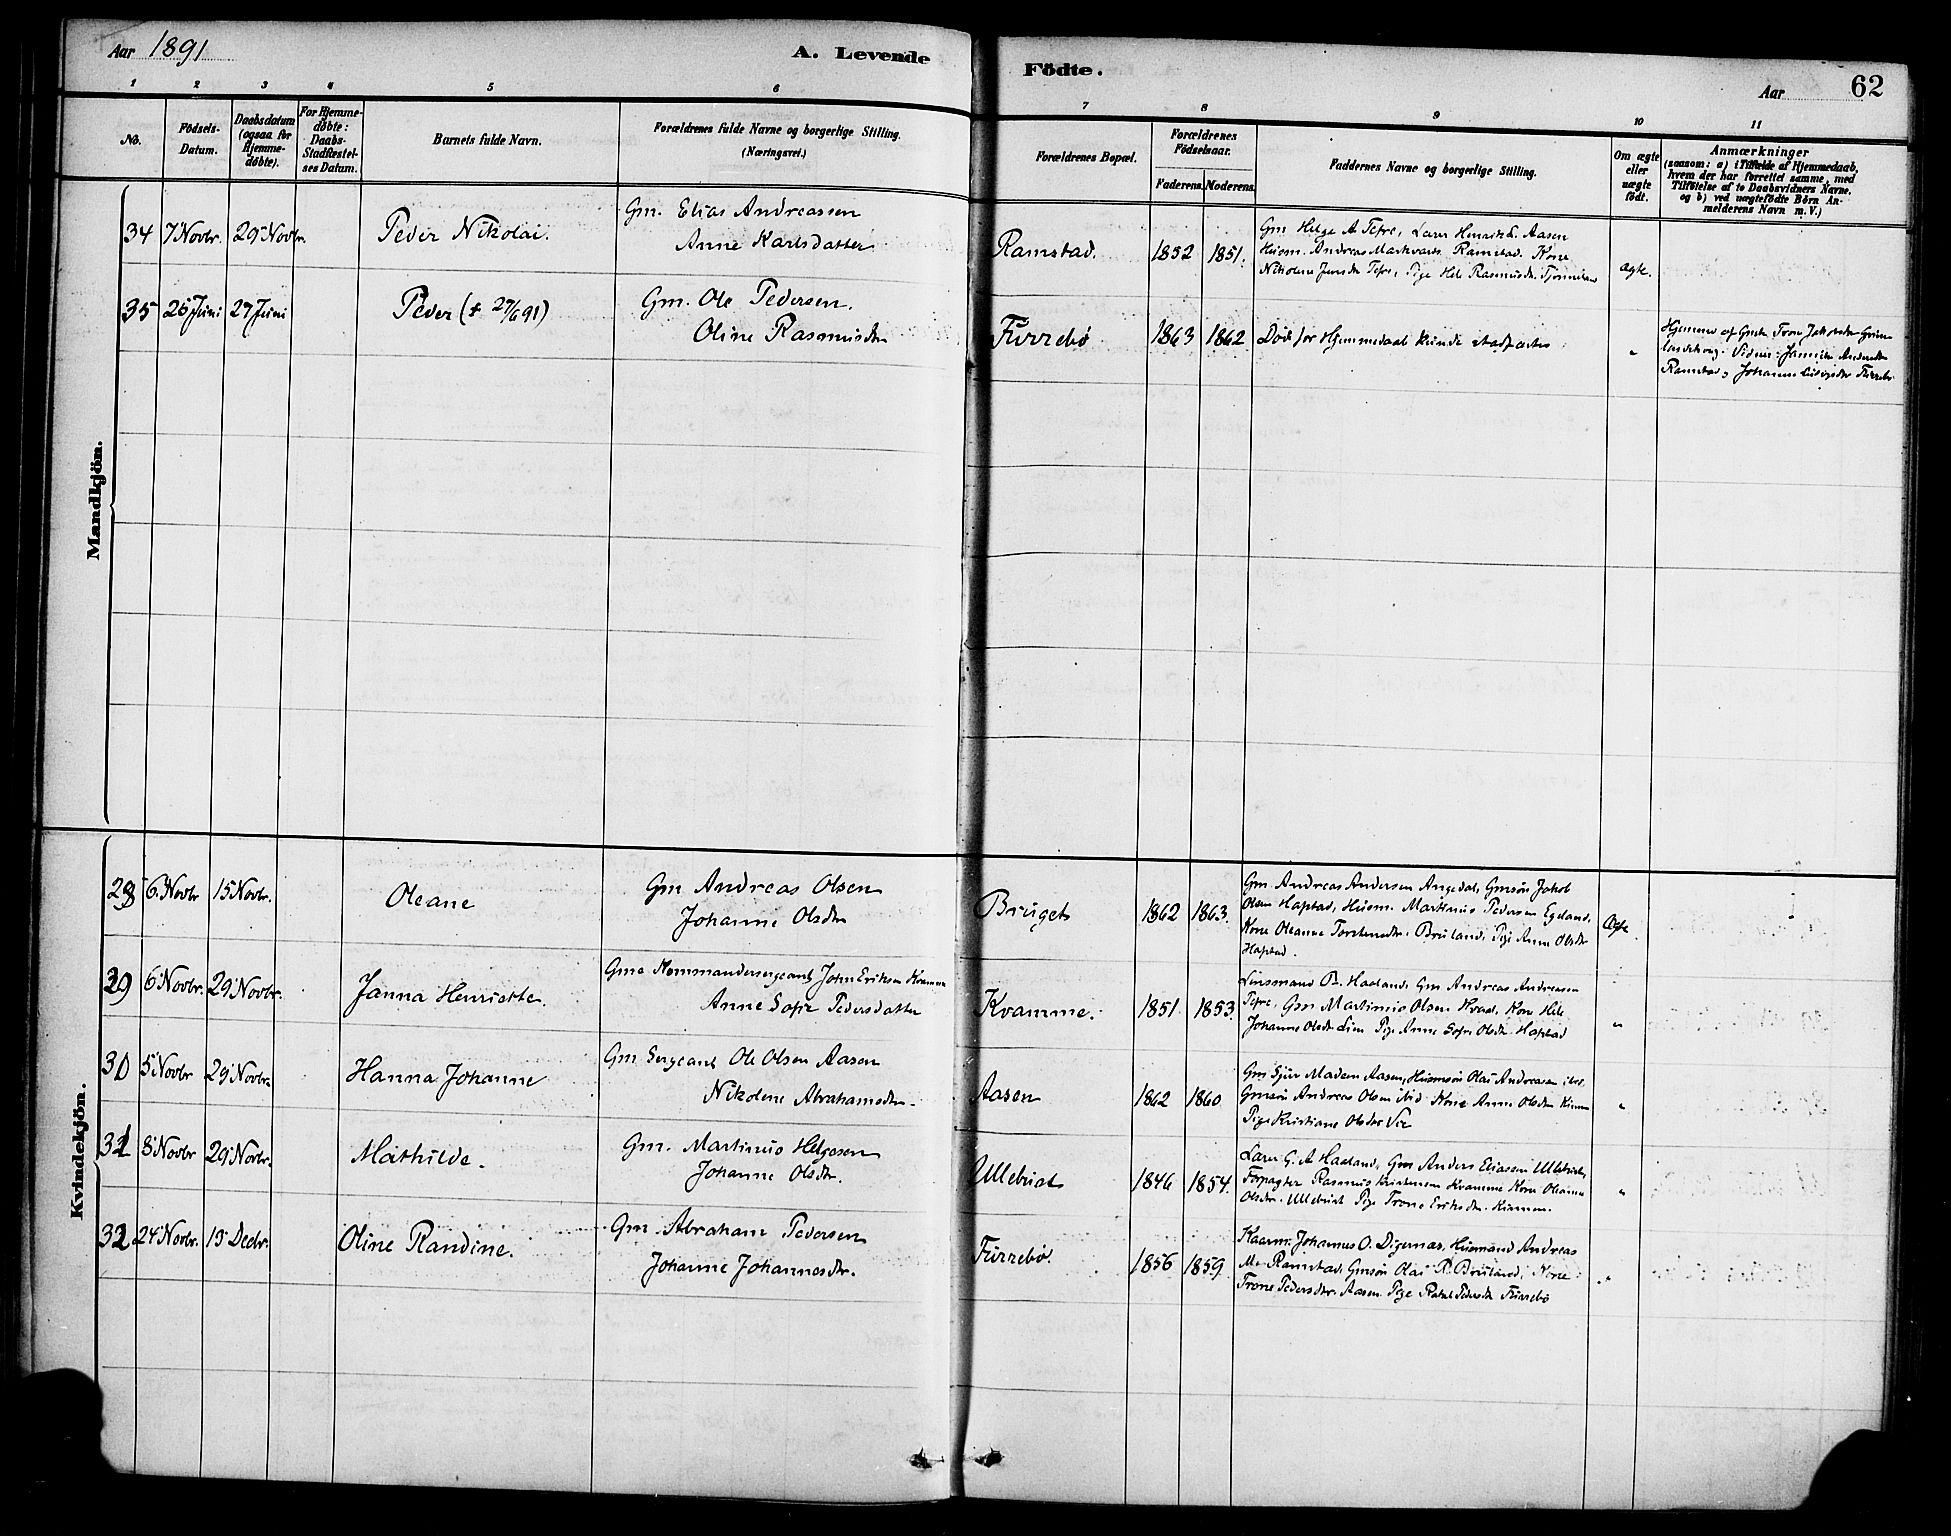 Aar 1891
A. Levende
Födte.
Aar
62
1 2 3 4 5 6 7 8 9 10 11
No.
Födsels-Datum.
Daabsdatum (ogsaa for Hjemmedöbte).
For Hjemmedöbte: Daabs-Stadfæstelses Datum.
Barnets fulde Navn.
Forældrenes fulde Navne og borgerlige Stilling.
(Næringsvei.)
Forældrenes Bopæl.
Forældrenes Födselsaar.
Faderens. Moderens.
Faddernes Navne og borgerlige Stilling.
Om ægte eller uægte født.
Anmærkninger
(saasom: a) i Tilfælde af Hjemmedaab,
hvem der har forrettet samme, med
Tilföielse af to Daabsvidners Navne,
og b) ved uægtefödte Börn Anmelderens Navn m. V.)
Mandkjön.
34 7 Novbr. 29 Novbr. Peder Nikolai. Gm. Elias Andreassen
Anne Karlsdatter
Ramstad. 1852 1851.
Gm Helge A Tefre, Lærer Henrik L. Aasen
Huusm. Andreas Markvards. Ramstad. Kone
Nikoline Jensdtr Tefre, Pige Hele Rasmusdtr
ægte.
35 25 Juni 27 Juni Peder († 27/6 91) Gm. Ole Pedersen.
Oline Rasmusdtr
Furrebø 1863 1862 Død før Hjemmedaab kunde stadfæstes "
Hjemmed. af Gmk Trone Jakobsdtr
Vidner: Jannike Andersdtr
Ramstad og Johanne Furrebø
Kvindekjön.
28 6. Novbr 15 Novbr. Oleane Gm Andreas Olsen
Johanne Olsdtr
Bruget 1862 1863.
Gm. Andreas Andersen Angedal, Gmsøn Jakob
Olsen Hapstad, Huusm. Martinus Pedersen Egeland,
Kone Oleanne Torstensdtr. Bruland, Pige Anne Olsdtr
Hapstad.
Ægte.
29 6 Novbr. 29 Novbr. Janna Henriette. Gm o Kommandersergeant John Eriksen Kvamme
Anne Sofie Pedersdatter
Kvamme. 1851 1853.
Lensmand P. Haaland, Gm Andreas Andreasen
Tefre, Gm Martinus Olsen Hvad, Kone Hele
Johanne Olsdtr Lien Pige Anne Sofie Olsdtr Hapstad
"
30 5 Novbr 29 Novbr. Hanna Johanne Gm. Sergeant Ole Olsen Aasen
Nikoline Abrahamsdtr.
Aasen 1862 1860
Gm Sjur Madsen Aasen, Huusmsøn Olai Andreasen ibd.
Gmsøn Andreas Olsen ibid Kone Anne Olsdtr
Pige Kristiane Olsdtr Vie
"
31 8 Novbr 29 Novbr. Mathilde. Gm. Martinus Helgesen
Johanne Olsdtr.
Ullebust 1846 1854.
Lærer G. A Haaland, Gm Anders Eliassen Ullebust,
Forpagter Rasmus Kristensen Kvamme Kone Oleanna
Olsdtr. Ullebust Pige Trone Eriksdtr. Kvamme.
"
32 24 Novbr. 15 Decbr. Oline Randine. Gm. Abraham Pedersen
Johanne Johannesdtr.
Furrebø. 1856 1859
Kaarm. Johannes O. Digernæs, Husmand Andreas
M. Ramstad, Gmsøn Olai R. Bruland, Kone
Trone Pedersdtr. Aasen. Pige Rakel Pedersdtr Furrebø
"